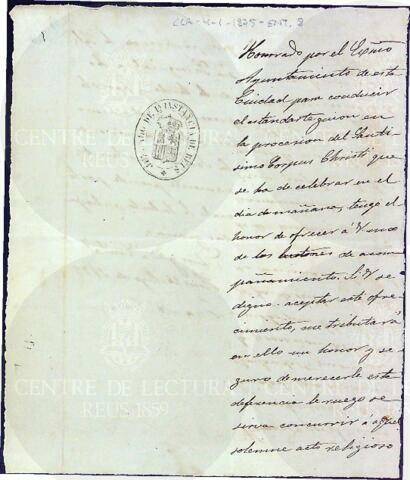 CLA-4-1-1875-ENT, 8
1
Honrado por el Exmo
Ayuntamiento de esta
Ciudad para conducir
el estandarte guion en
la procesion del Santi-
simo Corpus Christi que
se ha de celebrar en el
dia de mañana, tengo el
honor de ofrecer á V uno
de los bastones de acom-
pañamiento. Si V se
digna aceptar este ofre-
cimiento, me tributará
en ello un honor y se-
guro de merecerle esta
deferencia le ruego se
sirva concurrir á aquel
solemne acto religioso
JUZGADO DE 1ª INSTANCIA DE REUS
CENTRE DE LECTURA
REUS 1859
CENTRE DE LECTURA
REUS 1859